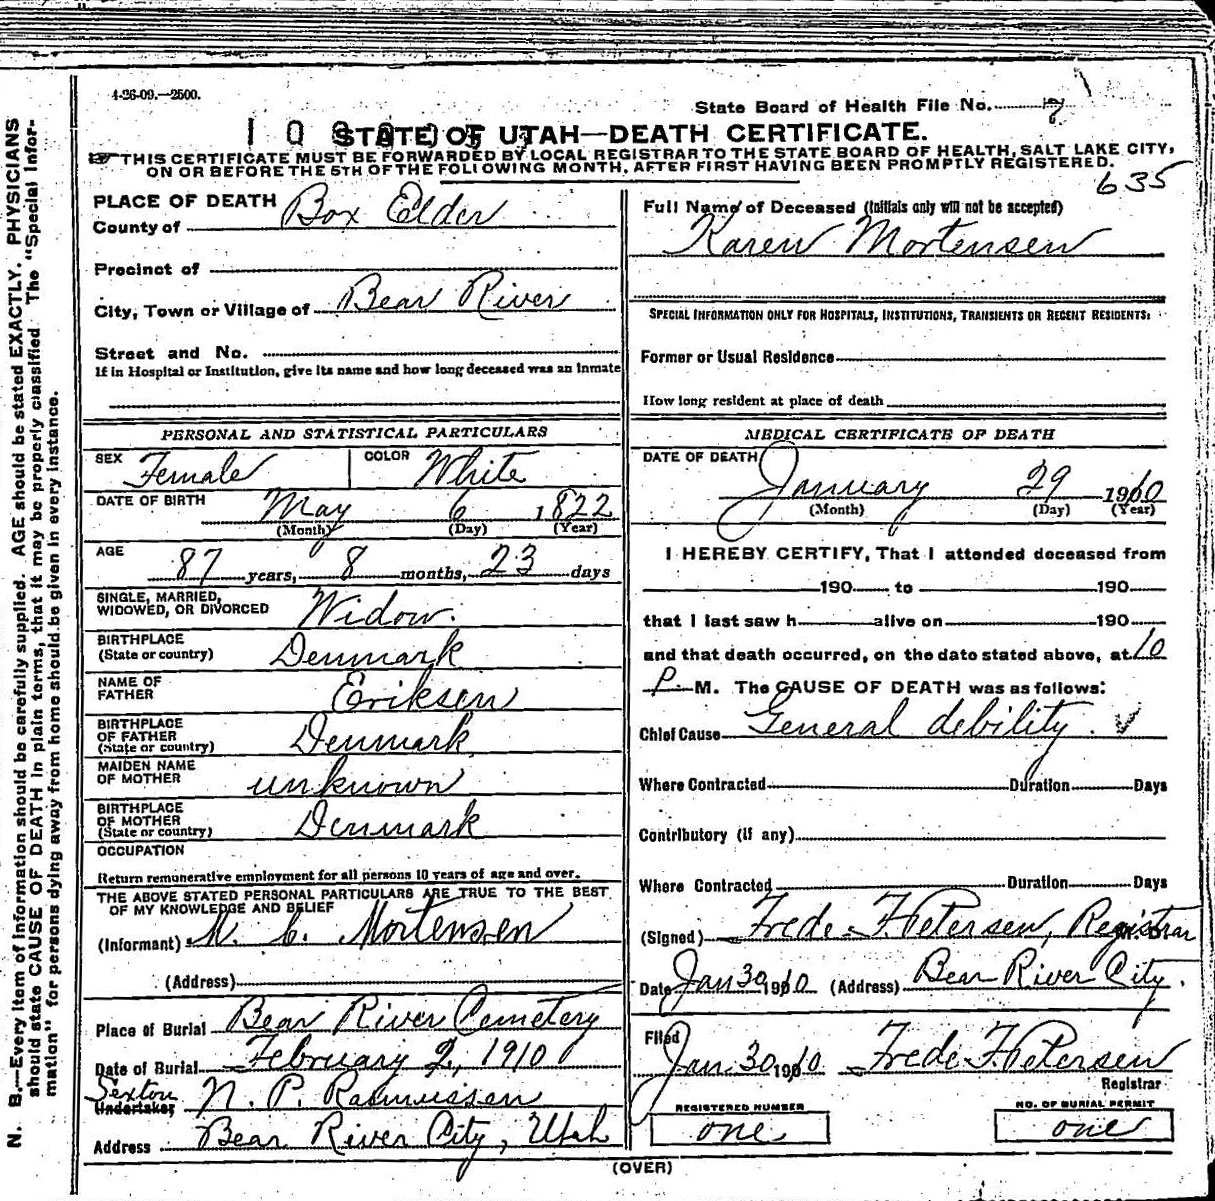 4-26-09.—2500.
State Board of Health File No. 7
STATE OF UTAH—DEATH CERTIFICATE.
THIS CERTIFICATE MUST BE FORWARDED BY LOCAL REGISTRAR TO THE STATE BOARD OF HEALTH, SALT LAKE CITY,
ON OR BEFORE THE 5TH OF THE FOLLOWING MONTH, AFTER FIRST HAVING BEEN PROMPTLY REGISTERED.
635
PLACE OF DEATH
County of Box Elder
Precinct of
City, Town or Village of Bear River
Street and No.
If in Hospital or Institution, give its name and how long deceased was an inmate
Full Name of Deceased (Initials only will not be accepted)
Karen Mortensen
SPECIAL INFORMATION ONLY FOR HOSPITALS, INSTITUTIONS, TRANSIENTS OR RECENT RESIDENTS:
Former or Usual Residence
How long resident at place of death
PERSONAL AND STATISTICAL PARTICULARS
SEX Female COLOR White
DATE OF BIRTH May 6 1822
(Month) (Day) (Year)
AGE
87 years, 8 months, 23 days
SINGLE, MARRIED,
WIDOWED, OR DIVORCED Widow.
BIRTHPLACE
(State or country) Denmark
NAME OF
FATHER Eriksen
BIRTHPLACE
OF FATHER
(State or country) Denmark
MAIDEN NAME
OF MOTHER unknown
BIRTHPLACE
OF MOTHER
(State or country) Denmark
OCCUPATION
Return remunerative employment for all persons 10 years of age and over.
THE ABOVE STATED PERSONAL PARTICULARS ARE TRUE TO THE BEST
OF MY KNOWLEDGE AND BELIEF
(Informant) N. C. Mortensen
(Address)
Place of Burial Bear River Cemetery
Date of Burial February 2, 1910
Sexton
Undertaker N. P. Rasmussen
Address Bear River City, Utah
MEDICAL CERTIFICATE OF DEATH
DATE OF DEATH
January 29 1910
(Month) (Day) (Year)
I HEREBY CERTIFY, That I attended deceased from
190 to 190
that I last saw h alive on 190
and that death occurred, on the date stated above, at 10
P. M. The CAUSE OF DEATH was as follows:
Chief Cause General debility.
Where Contracted Duration Days
Contributory (if any)
Where Contracted Duration Days
(Signed) Frede F. Petersen, Registrar
Date Jan 30 1910 (Address) Bear River City.
Filed
Jan. 30 1910 Frede F. Petersen
Registrar
REGISTERED NUMBER
one
NO. OF BURIAL PERMIT
one
(OVER)
N. B.—Every item of information should be carefully supplied. AGE should be stated EXACTLY. PHYSICIANS
should state CAUSE OF DEATH in plain terms, that it may be properly classified. The "Special Infor-
mation" for persons dying away from home should be given in every instance.